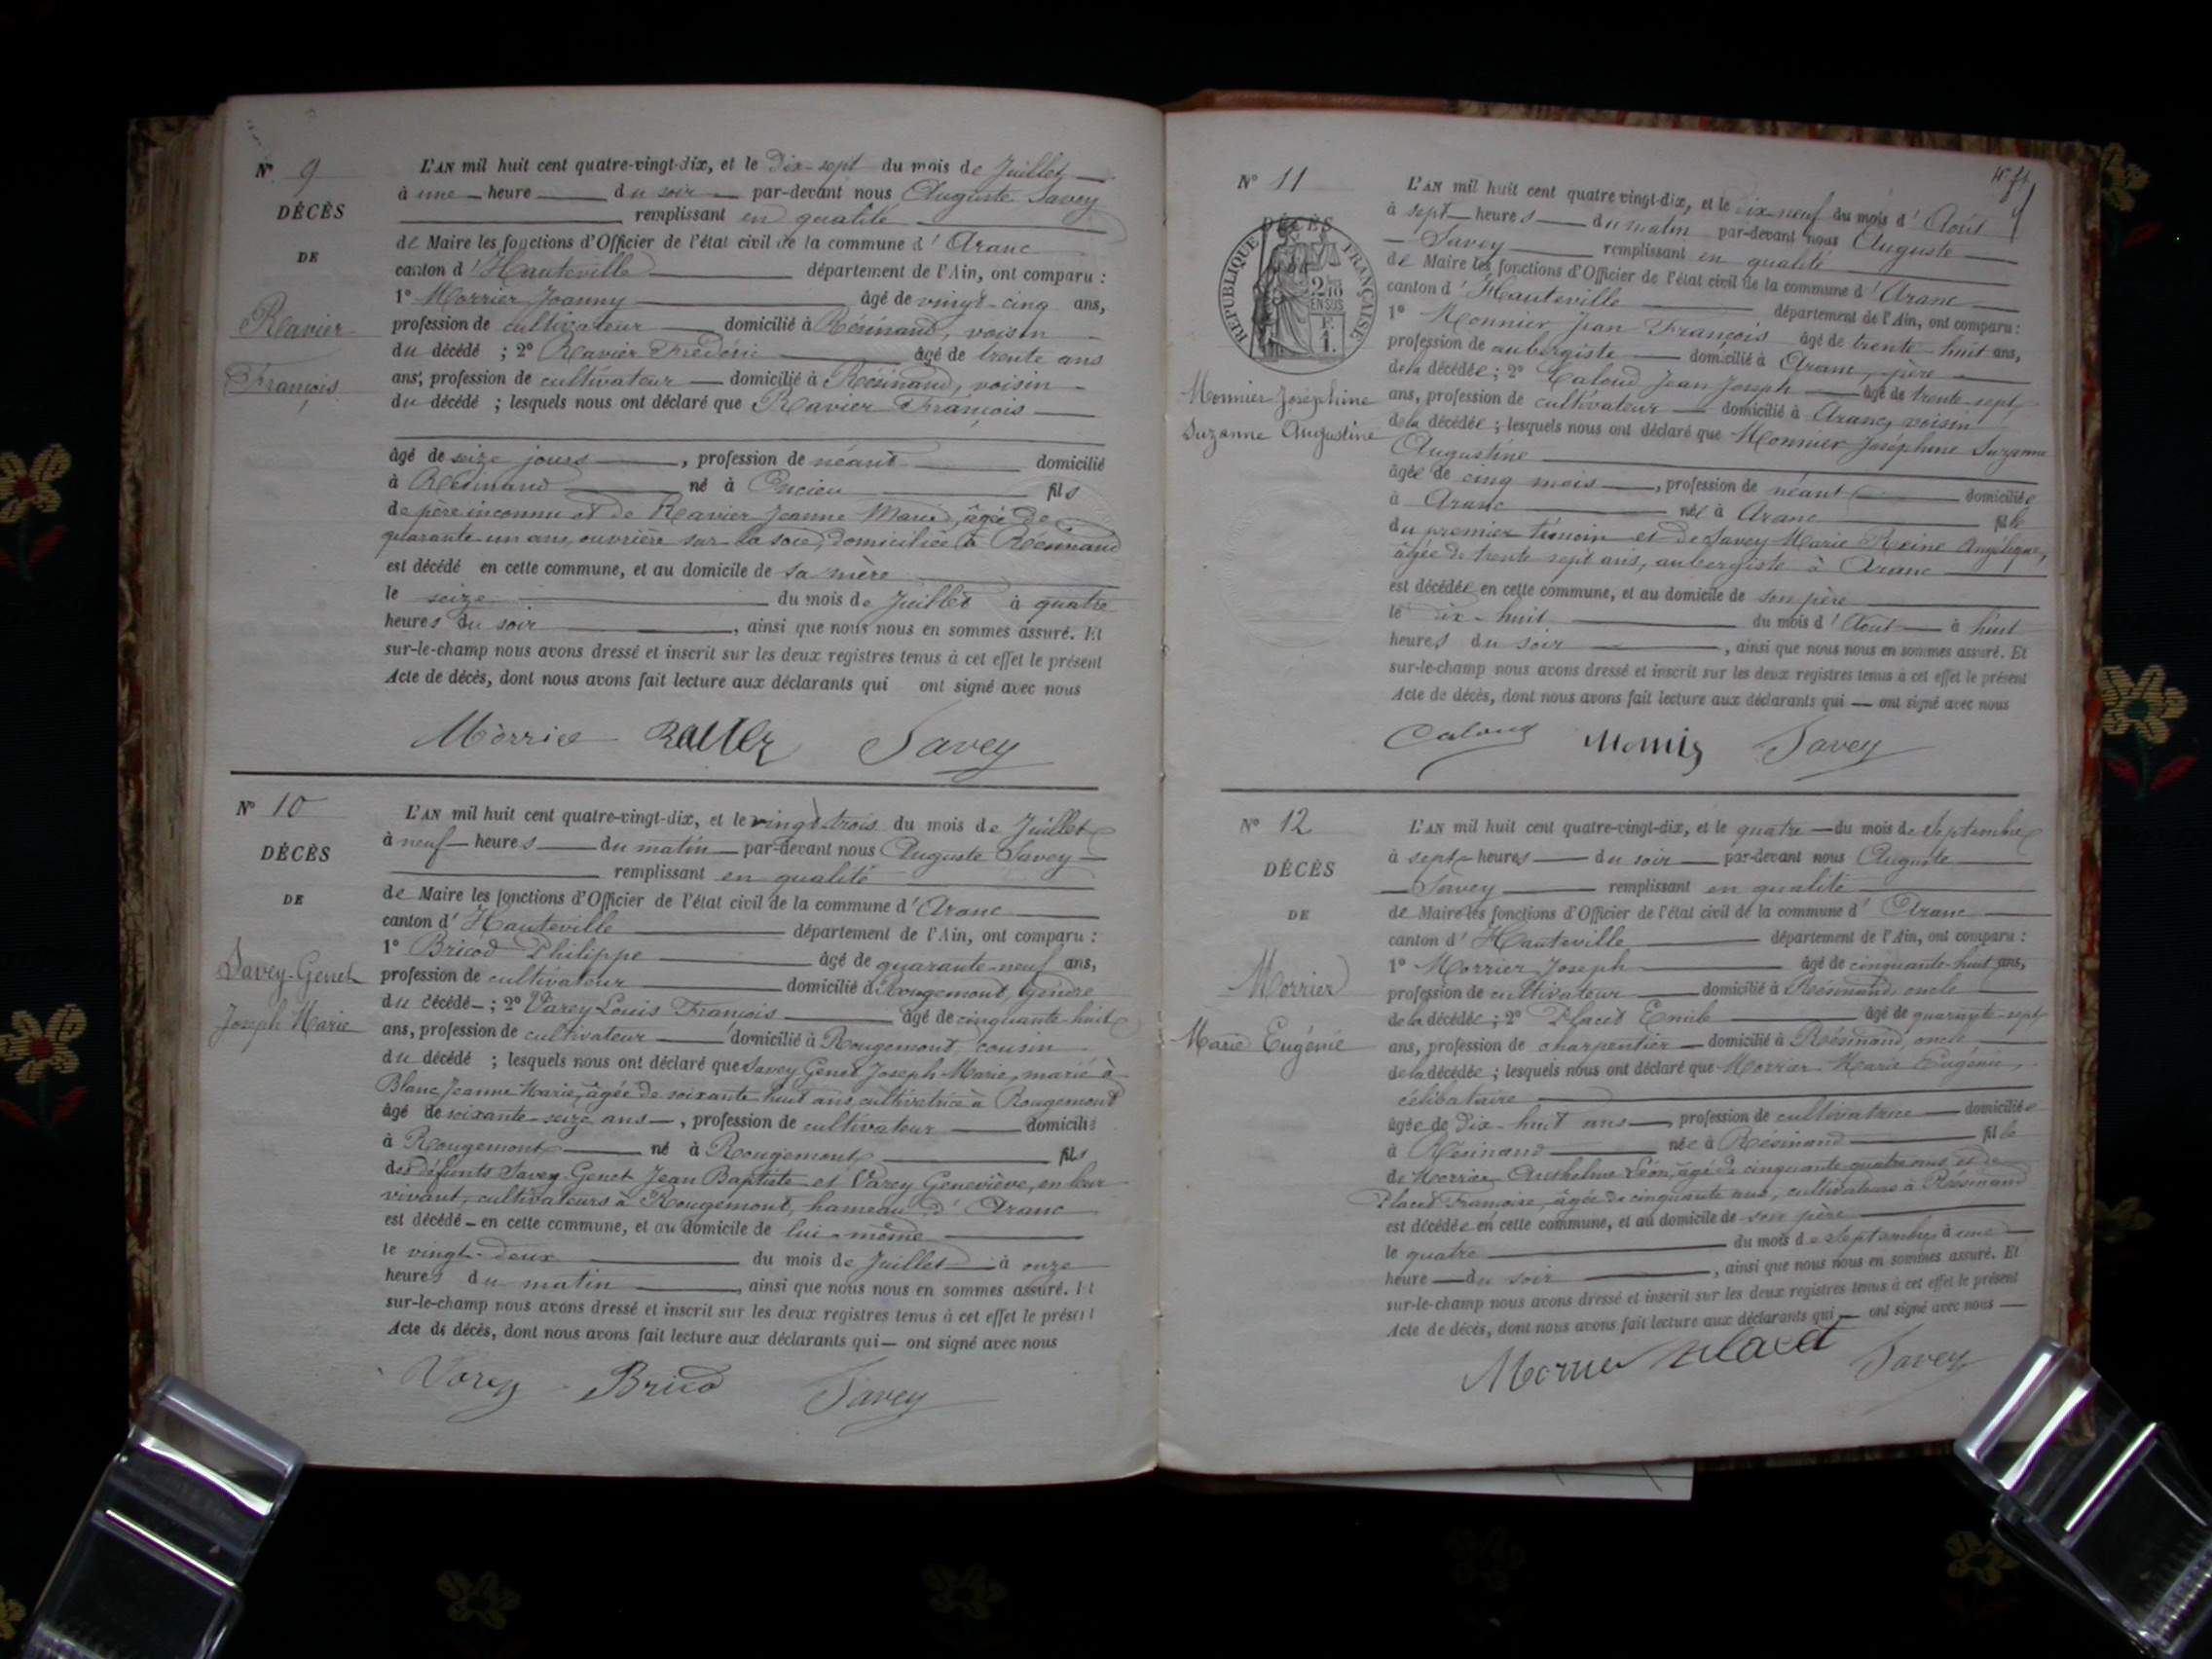 N° 9
DÉCÈS
DE
Ravier
François
L'AN mil huit cent quatre-vingt-dix, et le Dix-sept du mois de Juillet
à une heure du soir par-devant nous Auguste Savey
remplissant en qualité
de Maire les fonctions d'Officier de l'état civil de la commune d'Aranc
canton d'Hauteville département de l'Ain, ont comparu :
1° Morrier Joanny âgé de vingt-cinq ans,
profession de cultivateur domicilié à Résinand, voisin
du décédé ; 2° Ravier Frédéric âgé de trente ans
ans, profession de cultivateur domicilié à Résinand, voisin
du décédé ; lesquels nous ont déclaré que Ravier François
âgé de seize jours, profession de néant domicilié
à Résinand né à Oncieu fils
de père inconnu et de Ravier Jeanne Marie, âgée de
quarante-un ans, ouvrière sur la soie, domiciliée à Résinand
est décédé en cette commune, et au domicile de sa mère
le seize du mois de Juillet à quatre
heures du soir, ainsi que nous nous en sommes assuré. Et
sur-le-champ nous avons dressé et inscrit sur les deux registres tenus à cet effet le présent
Acte de décès, dont nous avons fait lecture aux déclarants qui ont signé avec nous
Savey
N° 10
DÉCÈS
DE
Savey-Genet
Joseph Marie
L'AN mil huit cent quatre-vingt-dix, et le vingt-trois du mois de Juillet
à neuf heures du matin par-devant nous Auguste Savey
remplissant en qualité
de Maire les fonctions d'Officier de l'état civil de la commune d'Aranc
canton d'Hauteville département de l'Ain, ont comparu :
1° Bricod Philippe âgé de quarante-neuf ans,
profession de cultivateur domicilié à Rougemont, gendre
du décédé ; 2° Varey Louis François âgé de cinquante-huit
ans, profession de cultivateur domicilié à Rougemont, cousin
du décédé ; lesquels nous ont déclaré que Savey Genet Joseph-Marie, marié à
Blanc Jeanne Marie, âgée de soixante-huit ans, cultivatrice à Rougemont
âgé de soixante-seize ans, profession de cultivateur domicilié
à Rougemont né à Rougemont fils
des défunts Savey-Genet Jean Baptiste et Varey Geneviève, en leur
vivant, cultivateurs à Rougemont, hameau d'Aranc
est décédé en cette commune, et au domicile de lui-même
le vingt-deux du mois de Juillet à onze
heures du matin, ainsi que nous nous en sommes assuré. Et
sur-le-champ nous avons dressé et inscrit sur les deux registres tenus à cet effet le présent
Acte de décès, dont nous avons fait lecture aux déclarants qui ont signé avec nous
Varey Bricod Savey
N° 11
DÉCÈS
DE
RÉPUBLIQUE FRANÇAISE
2/10
EN SUS
Monnier Joséphine
Suzanne Augustine
L'AN mil huit cent quatre vingt-dix, et le dix-neuf du mois d'Août
à sept heures du matin par-devant nous Auguste
Savey remplissant en qualité
de Maire les fonctions d'Officier de l'état civil de la commune d'Aranc
canton d'Hauteville département de l'Ain, ont comparu :
1° Monnier Jean François âgé de trente-huit ans,
profession de aubergiste domicilié à Aranc, père
de la décédée ; 2° Caloud Jean Joseph âgé de trente-sept
ans, profession de cultivateur domicilié à Aranc, voisin
de la décédée ; lesquels nous ont déclaré que Monnier Joséphine Suzanne
Augustine
âgée de cinq mois, profession de néant domiciliée
à Aranc née à Aranc fille
du premier témoin et de Savey Marie Reine Angélique,
âgée de trente sept ans, aubergiste à Aranc
est décédée en cette commune, et au domicile de son père
le dix-huit du mois d'Août à huit
heures du soir, ainsi que nous nous en sommes assuré. Et
sur-le-champ nous avons dressé et inscrit sur les deux registres tenus à cet effet le présent
Acte de décès, dont nous avons fait lecture aux déclarants qui ont signé avec nous
Caloud Savey
N° 12
DÉCÈS
DE
Morrier
Marie Eugénie
L'AN mil huit cent quatre-vingt-dix, et le quatre du mois de Septembre
à sept heures du soir par-devant nous Auguste
Savey remplissant en qualité
de Maire les fonctions d'Officier de l'état civil de la commune d'Aranc
canton d'Hauteville département de l'Ain, ont comparu :
1° Morrier Joseph âgé de cinquante-huit ans,
profession de cultivateur domicilié à Résinand, oncle
de la décédée ; 2° Placet Emile âgé de quarante-sept
ans, profession de charpentier domicilié à Résinand, oncle
de la décédée ; lesquels nous ont déclaré que Morrier Marie Eugénie,
célibataire
âgée de dix-huit ans, profession de cultivatrice domiciliée
à Résinand née à Résinand fille
de Morrier Anthelme Léon, âgé de cinquante-quatre ans, et de
Placet Françoise, âgée de cinquante ans, cultivateurs à Résinand
est décédée en cette commune, et au domicile de son père
le quatre du mois de Septembre à une
heure du soir, ainsi que nous nous en sommes assuré. Et
sur-le-champ nous avons dressé et inscrit sur les deux registres tenus à cet effet le présent
Acte de décès, dont nous avons fait lecture aux déclarants qui ont signé avec nous
Placet Savey